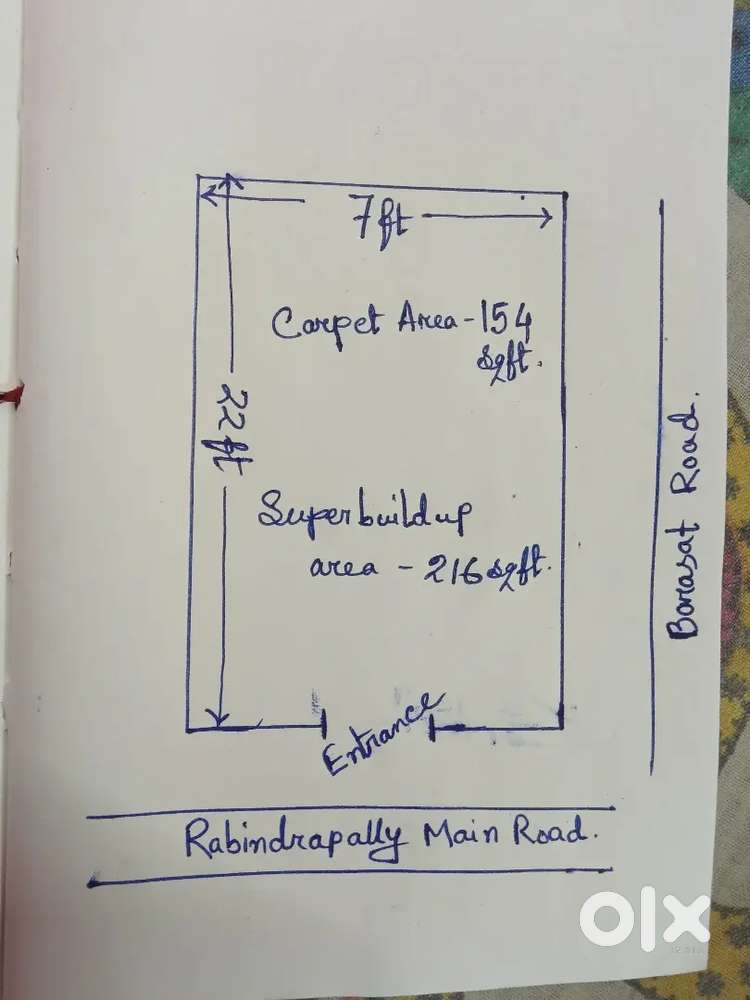 7ft
Carpet Area - 154
sqft.
22ft
Superbuildup
area - 216 sqft.
Barasat Road.
Entrance
Rabindrapally Main Road.
olx